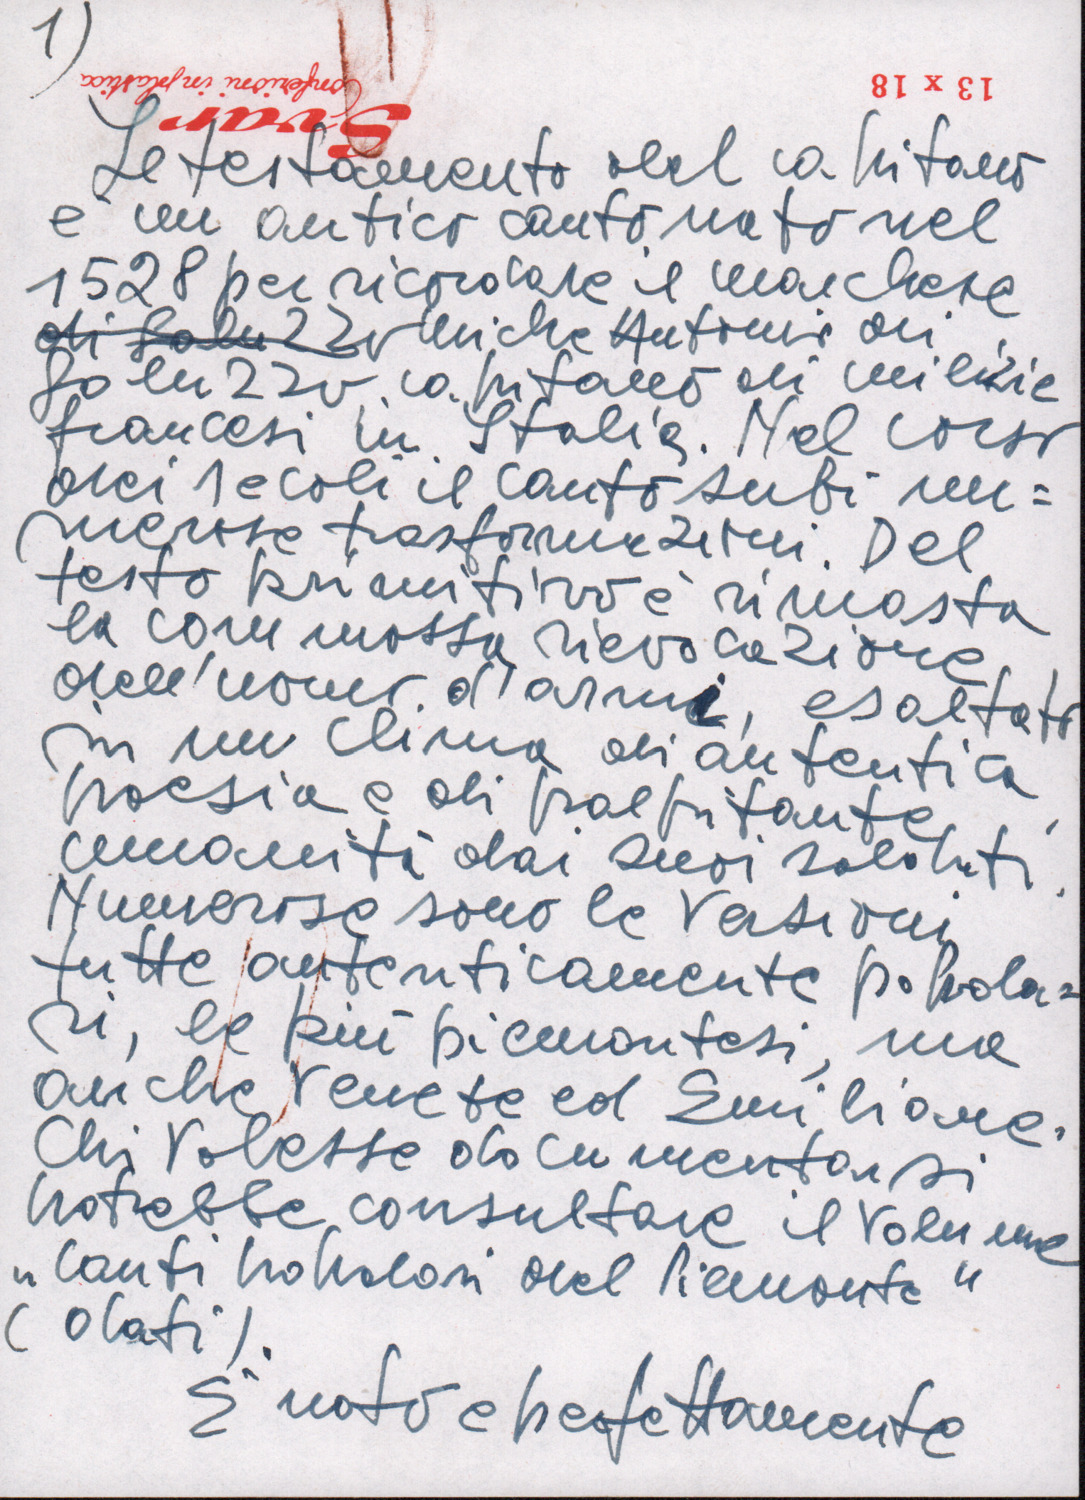 1)
Svar
Confezioni in plastica
13 x 18
Il testamento del capitano
e' un antico canto, nato nel
1528 per ricordare il marchese
di Saluzzo Michele Antonio di
Saluzzo, capitano di milizie
francesi in Italia. Nel corso
dei secoli il canto subì nu=
merose trasformazioni. Del
testo primitivo è rimasta
la commossa rievocazione
dell'uomo d'armi, esaltato
in un clima di autentica
poesia e di palpitante
umanità dai suoi soldati.
Numerose sono le versioni
tutte autenticamente popola=
ri, le più piemontesi, ma
anche Venete ed Emiliane.
Chi volesse documentarsi
potrebbe consultare il volume
"Canti popolari del Piemonte"
(dati).
E' noto e perfettamente